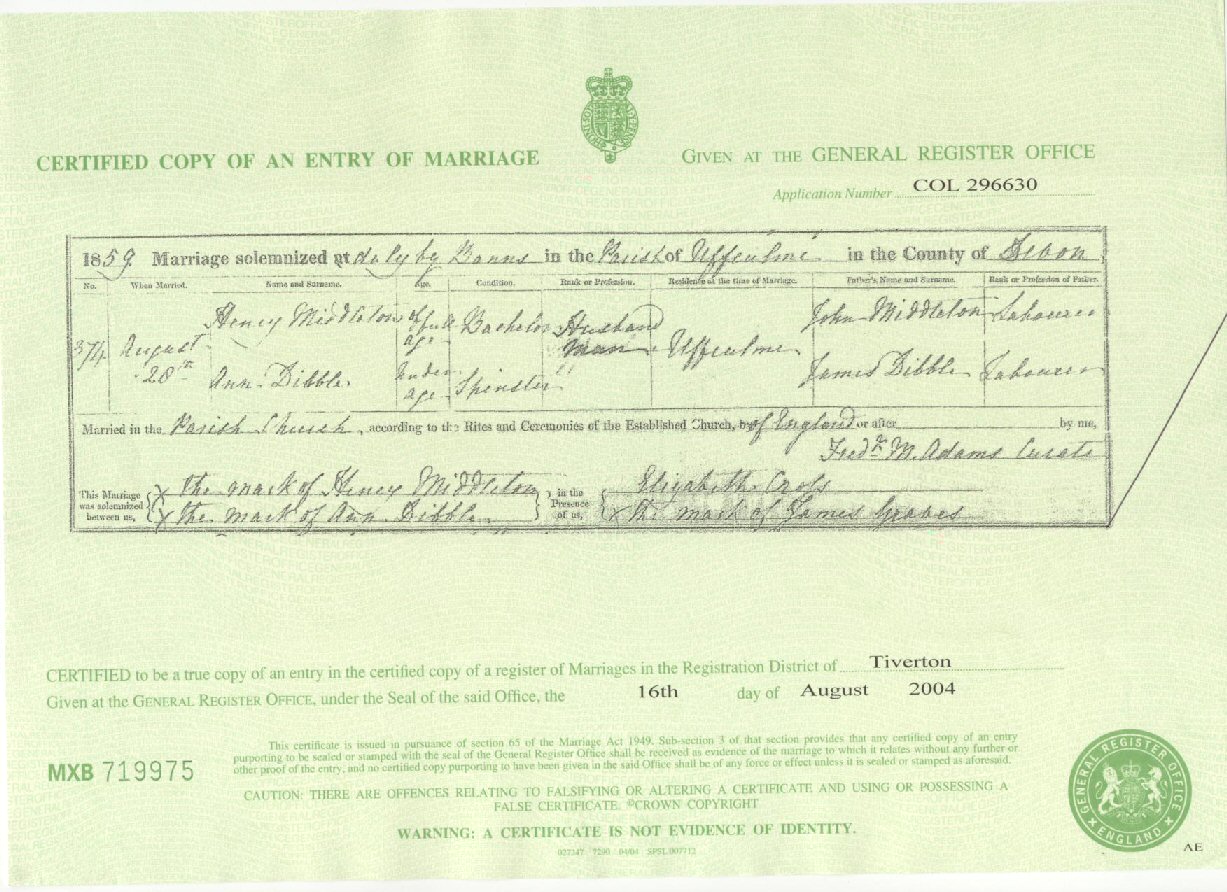 CERTIFIED COPY OF AN ENTRY OF MARRIAGE
GIVEN AT THE GENERAL REGISTER OFFICE
Application Number COL 296630
1859. Marriage solemnized at duly by Banns in the Parish of Uffculme in the County of Devon
No. When Married. Name and Surname. Age. Condition. Rank or Profession. Residence at the time of Marriage. Father's Name and Surname. Rank or Profession of Father.
374 August 28th
Henry Middleton Of full age Bachelor Husband man Uffculme John Middleton Labourer
Ann Dibble Under age Spinster James Dibble Labourer
Married in the Parish Church, according to the Rites and Ceremonies of the Established Church, by of England or after by me,
Fredk M. Adams Curate
This Marriage was solemnized between us, X the mark of Henry Middleton in the Presence of us, Elizabeth Cross
X the mark of Ann Dibble X the mark of James Graves
CERTIFIED to be a true copy of an entry in the certified copy of a register of Marriages in the Registration District of Tiverton
Given at the GENERAL REGISTER OFFICE, under the Seal of the said Office, the 16th day of August 2004
MXB 719975
This certificate is issued in pursuance of section 65 of the Marriage Act 1949. Sub-section 3 of that section provides that any certified copy of an entry
purporting to be sealed or stamped with the seal of the General Register Office shall be received as evidence of the marriage to which it relates without any further or
other proof of the entry, and no certified copy purporting to have been given in the said Office shall be of any force or effect unless it is sealed or stamped as aforesaid.
CAUTION: THERE ARE OFFENCES RELATING TO FALSIFYING OR ALTERING A CERTIFICATE AND USING OR POSSESSING A
FALSE CERTIFICATE. ©CROWN COPYRIGHT
WARNING: A CERTIFICATE IS NOT EVIDENCE OF IDENTITY.
027247 7290 04/04 SPSL 007712
GENERAL REGISTER OFFICE
ENGLAND
AE